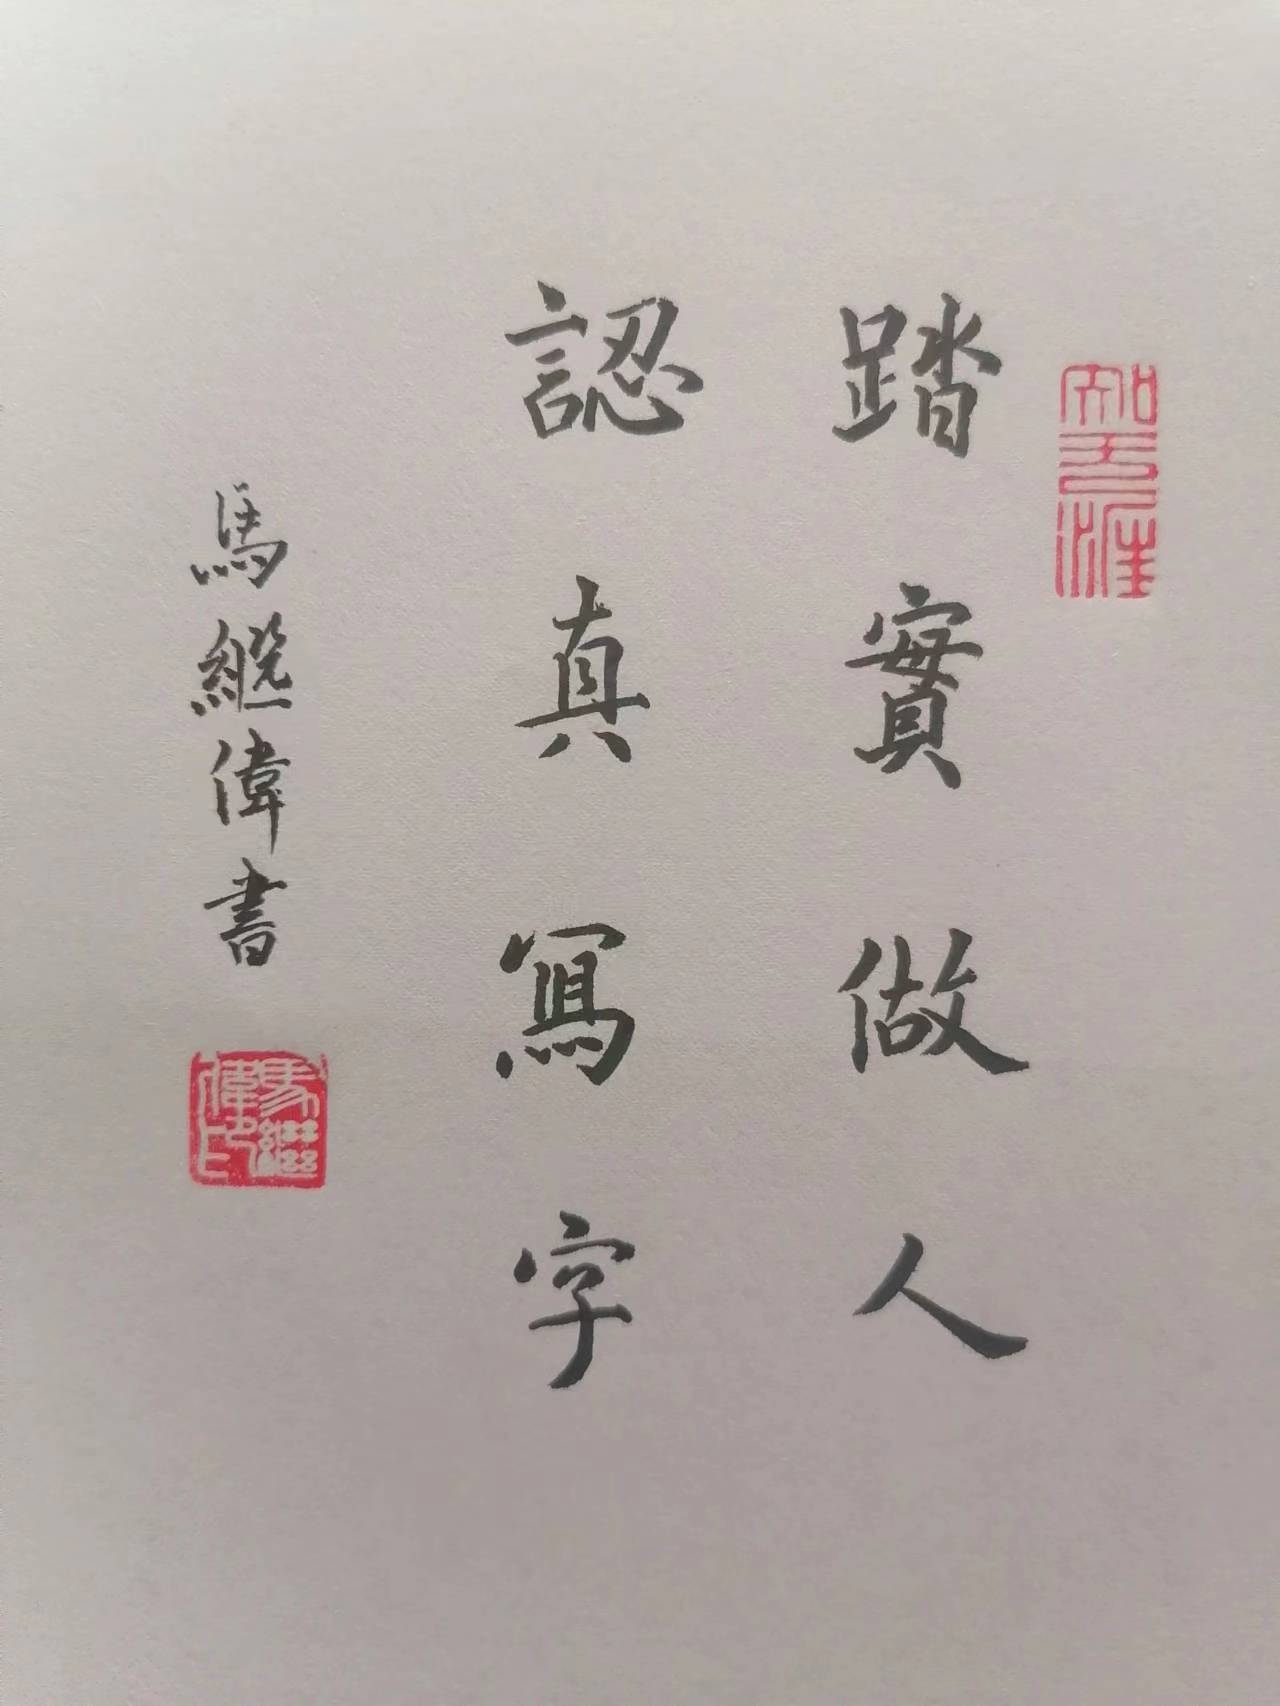 知无涯
踏實做人
認真寫字
馬繼偉書
馬繼偉印